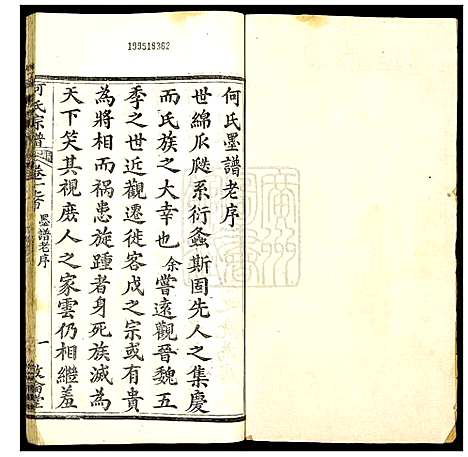 199518362
何氏墨譜老序
世綿瓜瓞系衍螽斯固先人之集慶
而氏族之大幸也余嘗遠觀晉魏五
季之世近觀遷徙客戍之宗或有貴
為將相而禍患旋踵者身死族滅為
天下笑其視庶人之家雲仍相繼羞
何氏宗譜
卷首
墨譜老序
一
敦倫堂